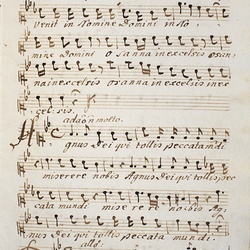 Venit in Nomine Domini in No,
mine Domini osanna in excelsis osan,
na in excelsis osanna in excelsis inex
celsis
adagio molto.
Agnus Dei qui tollis peccata mundi
miserere nobis Agnus Dei qui tollis pec
cata mundi miserere nobis Ag,
nus Dei qui tollis peccata mundi
allo: